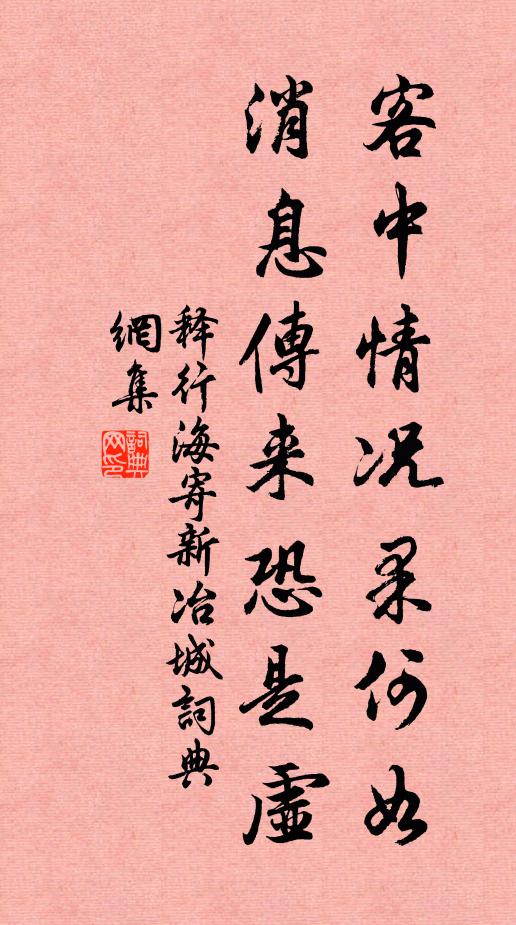 客中情况果何如
消息傳来恐是虛
释行海寄新冶城詞典
網集
詞典网印